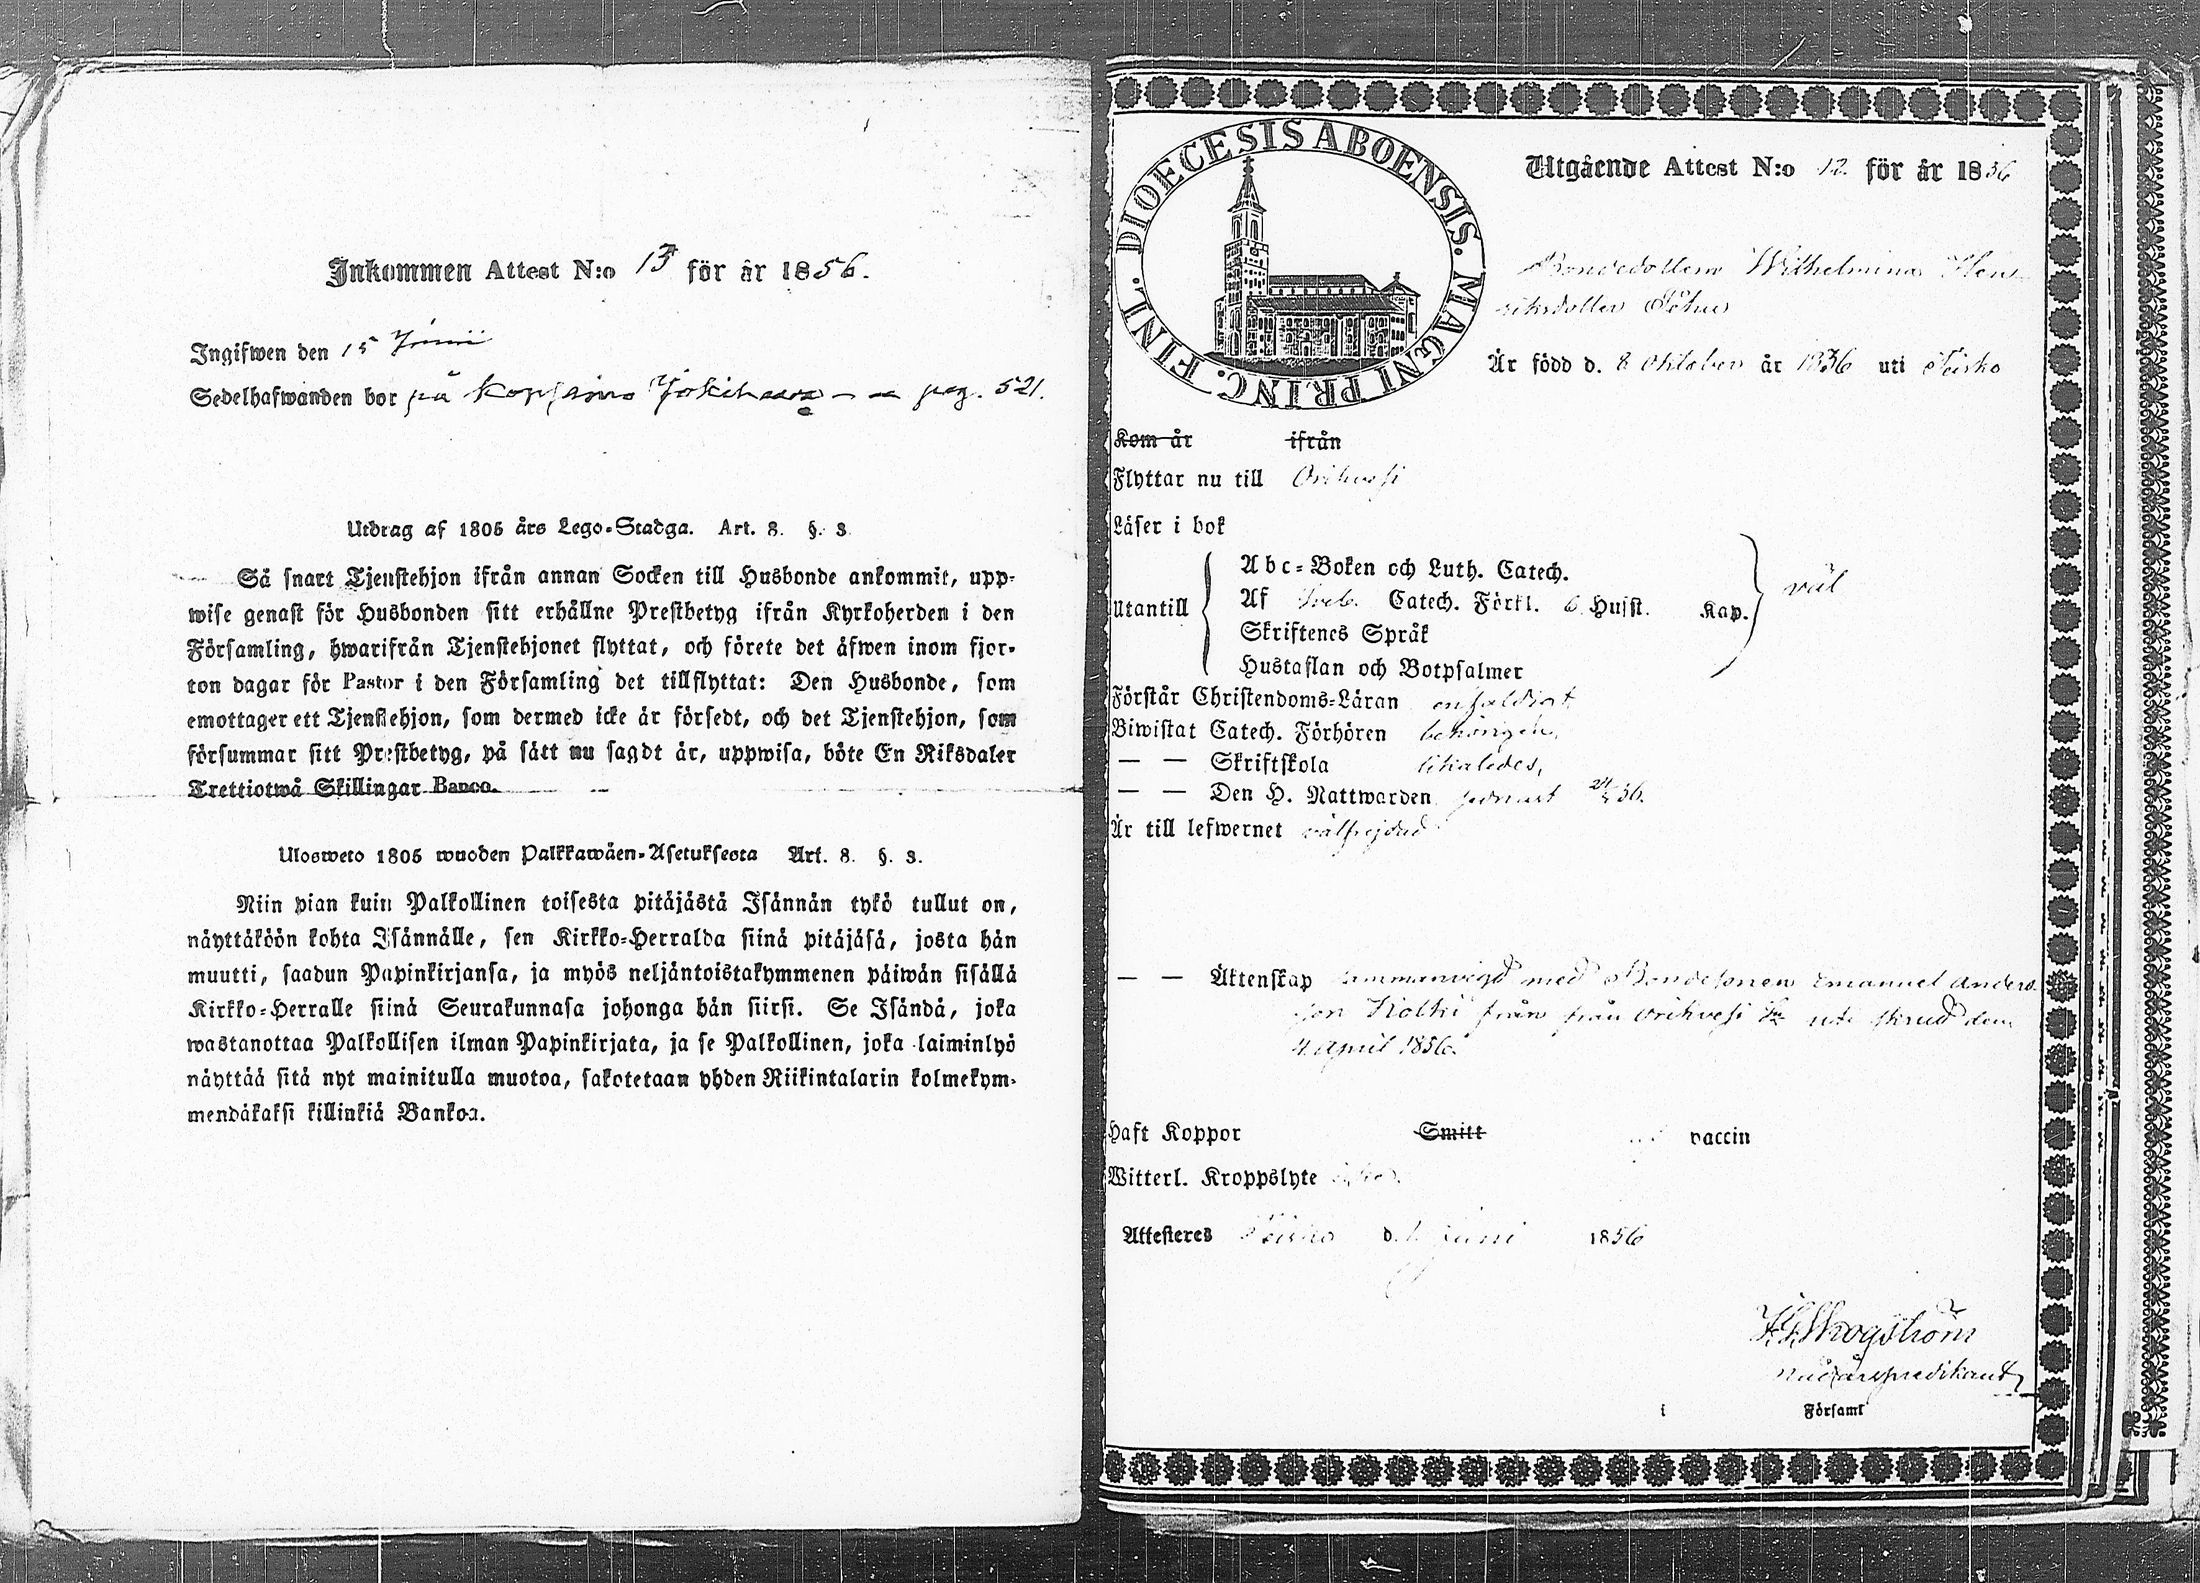 Inkommen Attest N:o 13 för år 1856.
Ingifwen den 15 Junii
Sedelhafwanden bor på pag. 521.
Utdrag af 1805 års Lego-Stadga. Art. 8. §. 3
Så snart Tjenstehjon ifrån annan Socken till Husbonde ankommit, upp-
wise genast för Husbonden sitt erhållne Prestbetyg ifrån Kyrkoherden i den
Församling, hwarifrån Tjenstehjonet flyttat, och förete det äfwen inom fjor-
ton dagar för Pastor i den Församling det tillflyttat: Den Husbonde, som
emottager ett Tjenstehjon, som dermed icke är försedt, och det Tjenstehjon, som
försummar sitt Prestbetyg, på sätt nu sagdt är, uppwisa, böte En Riksdaler
Trettiotwå Skillingar Banco.
Ulosweto 1805 wuoden Palkkawäen-Asetuksesta Art. 8. §. 3.
Niin pian kuin Palkollinen toisesta pitäjästä Isännän tykö tullut on,
näyttäköön kohta Isännälle, sen Kirkko-Herralda siinä pitäjäsä, josta hän
muutti, saadun Papinkirjansa, ja myös neljäntoistakymmenen päiwän sisällä
Kirkko-Herralle siinä Seurakunnasa johonga hän siirsi. Se Isändä, joka
wastanottaa Palkollisen ilman Papinkirjata, ja se Palkollinen, joka laiminlyö
näyttää sitä nyt mainitulla muotoa, sakotetaan yhden Riikintalarin kolmekym-
mendäkaksi killinkiä Bankoa.
DIOECESIS ABOENSIS. MAGNI PRINC. FINL.
Utgående Attest N:o 12. för år 1856
Bondedottern Wilhelmina Hen
riksdotter
Är född d. 8 Oktober år 1836 uti Teisko
Kom år ifrån
Flyttar nu till Orihvesi
Läser i bok
Abc-Boken och Luth. Catech.
Utantill Af Sveb. Catech. Förkl. 6 Husst. Kap. väl
Skriftenes Språk
Hustaflan och Botpsalmer
Förstår Christendoms-Läran enfaldigt
Biwistat Catech. Förhören behörigen,
— — Skriftskola likaledes,
— — Den H. Nattwarden senast 56.
Är till lefwernet välfrejdad
— — Äktenskap sammanvigd med Bondesonen Emanuel Anders-
son från från Orihvesi den
4 April 1856.
Haft Koppor Smitt vaccin
Witterl. Kroppslyte
Attesteres Teisko d. 1 Juni 1856
Skogström
Nådårspredikant
i Församl